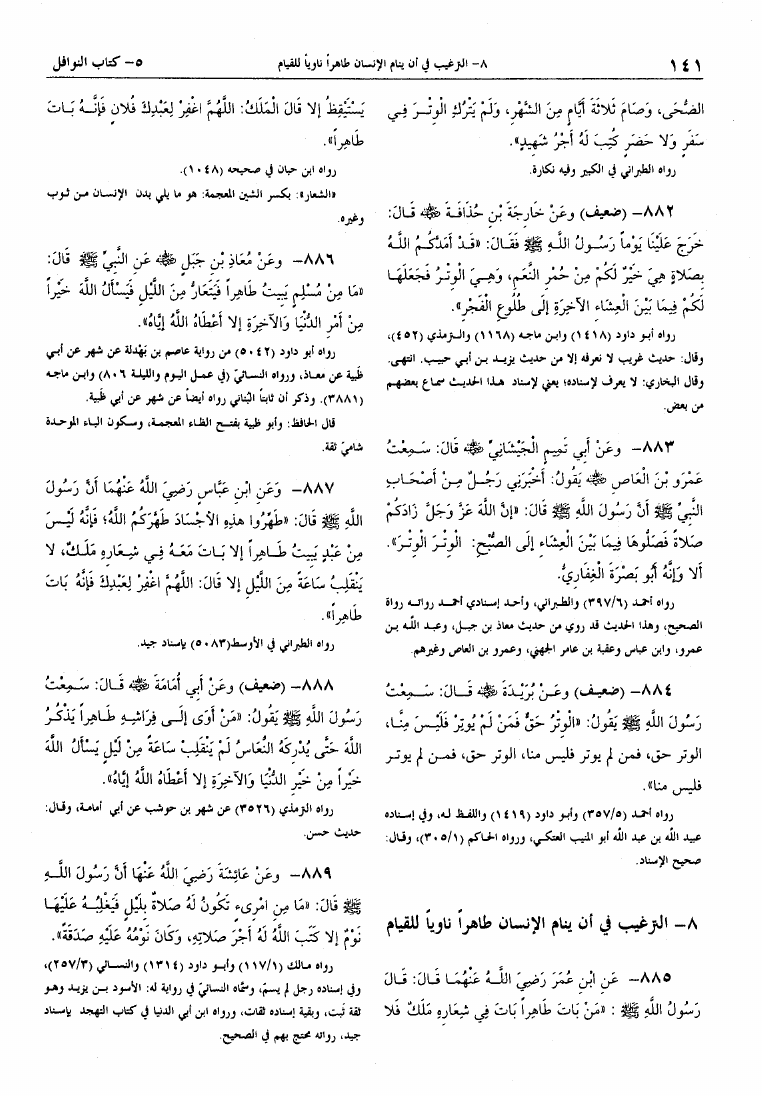 ١٤١
٨- الترغيب في أن ينام الإنسان طاهراً ناوياً للقيام
٥- كتاب النوافل
الضُّحَى، وَصَامَ ثَلاثَةَ أَيَّامٍ مِنَ الشَّهْرِ، وَلَمْ يَتْرُكِ الْوِتْرَ فِي
سَفَرٍ وَلا حَضَرٍ كُتِبَ لَهُ أَجْرُ شَهِيدٍ».
رواه الطبراني في الكبير وفيه نكارة.
٨٨٢- (ضعيف) وعَنْ خَارِجَةَ بْنِ حُذَافَةَ ﷺ قَالَ:
خَرَجَ عَلَيْنَا يَوْماً رَسُولُ اللَّهِ ﷺ فَقَالَ: «قَدْ أَمَدَّكُمُ اللَّهُ
بِصَلاةٍ هِيَ خَيْرٌ لَكُمْ مِنْ حُمْرِ النَّعَمِ، وَهِيَ الْوِتْرُ فَجَعَلَهَا
لَكُمْ فِيمَا بَيْنَ الْعِشَاءِ الآخِرَةِ إِلَى طُلُوعِ الْفَجْرِ».
رواه أبو داود (١٤١٨) وابن ماجه (١١٦٨) والترمذي (٤٥٢)،
وقال: حديث غريب لا نعرفه إلا من حديث يزيد بن أبي حبيب. انتهى.
وقال البخاري: لا يعرف لإسناده؛ يعني لإسناد هذا الحديث سماع بعضهم
من بعض.
٨٨٣- وعَنْ أَبِي تَمِيمٍ الْجَيْشَانِيِّ ﷺ قَالَ: سَمِعْتُ
عَمْرَو بْنَ الْعَاصِ ﷺ يَقُولُ: أَخْبَرَنِي رَجُلٌ مِنْ أَصْحَابِ
النَّبِيِّ ﷺ أَنَّ رَسُولَ اللَّهِ ﷺ قَالَ: «إِنَّ اللَّهَ عَزَّ وَجَلَّ زَادَكُمْ
صَلاةً فَصَلُّوهَا فِيمَا بَيْنَ الْعِشَاءِ إِلَى الصُّبْحِ: الْوِتْرَ الْوِتْرَ».
أَلا وَإِنَّهُ أَبُو بَصْرَةَ الْغِفَارِيُّ.
رواه أحمد (٣٩٧/٦) والطبراني، وأحد إسنادي أحمد رواته رواة
الصحيح، وهذا الحديث قد روي من حديث معاذ بن جبل، وعبد الله بن
عمرو، وابن عباس وعقبة بن عامر الجهني، وعمرو بن العاص وغيرهم.
٨٨٤- (ضعيف) وعَنْ بُرَيْدَةَ ﷺ قَالَ: سَمِعْتُ
رَسُولَ اللَّهِ ﷺ يَقُولُ: «الْوِتْرُ حَقٌّ فَمَنْ لَمْ يُوتِرْ فَلَيْسَ مِنَّا،
الوتر حق، فمن لم يوتر فليس منا، الوتر حق، فمن لم يوتر
فليس منا».
رواه أحمد (٣٥٧/٥) وأبو داود (١٤١٩) واللفظ له، وفي إسناده
عبيد الله بن عبد الله أبو المنيب العتكي، ورواه الحاكم (٣٠٥/١)، وقال:
صحيح الإسناد.
٨- الترغيب في أن ينام الإنسان طاهراً ناوياً للقيام
٨٨٥- عَنِ ابْنِ عُمَرَ رَضِيَ اللَّهُ عَنْهُمَا قَالَ: قَالَ
رَسُولُ اللَّهِ ﷺ : «مَنْ بَاتَ طَاهِراً بَاتَ فِي شِعَارِهِ مَلَكٌ فَلا
يَسْتَيْقِظُ إلا قَالَ الْمَلَكُ: اللَّهُمَّ اغْفِرْ لِعَبْدِكَ فُلانٍ فَإِنَّهُ بَاتَ
طَاهِراً».
رواه ابن حبان في صحيحه (١٠٤٨).
«الشعار»: بكسر الشين المعجمة: هو ما يلي بدن الإنسان من ثوب
وغيره.
٨٨٦- وعَنْ مُعَاذِ بْنِ جَبَلٍ ﷺ عَنِ النَّبِيِّ ﷺ قَالَ:
«مَا مِنْ مُسْلِمٍ يَبِيتُ طَاهِراً فَيَتَعَارُّ مِنَ اللَّيْلِ فَيَسْأَلُ اللَّهَ خَيْراً
مِنْ أَمْرِ الدُّنْيَا وَالآخِرَةِ إلا أَعْطَاهُ اللَّهُ إِيَّاهُ».
رواه أبو داود (٥٠٤٢) من رواية عاصم بن بَهْدلة عن شهر عن أبي
ظبية عن معاذ، ورواه النسائي (في عمل اليوم والليلة ٨٠٦) وابن ماجه
(٣٨٨١). وذكر أن ثابتاً البُناني رواه أيضاً عن شهر عن أبي ظبية.
قال الحافظ: وأبو ظبية بفتح الظاء المعجمة، وسكون الباء الموحدة
شاميّ ثقة.
٨٨٧- وَعَنِ ابْنِ عَبَّاسٍ رَضِيَ اللَّهُ عَنْهُمَا أَنَّ رَسُولَ
اللَّهِ ﷺ قَالَ: «طَهِّرُوا هذِهِ الأَجْسَادَ طَهَّرَكُمُ اللَّهُ؛ فَإِنَّهُ لَيْسَ
مِنْ عَبْدٍ يَبِيتُ طَاهِراً إلا بَاتَ مَعَهُ فِي شِعَارِهِ مَلَكٌ، لا
يَنْقَلِبُ سَاعَةً مِنَ اللَّيْلِ إلا قَالَ: اللَّهُمَّ اغْفِرْ لِعَبْدِكَ فَإِنَّهُ بَاتَ
طَاهِراً».
رواه الطبراني في الأوسط(٥٠٨٣) بإسناد جيد.
٨٨٨- (ضعيف) وعَنْ أَبِي أُمَامَةَ ﷺ قَالَ: سَمِعْتُ
رَسُولَ اللَّهِ ﷺ يَقُولُ: «مَنْ أَوَى إِلَى فِرَاشِهِ طَاهِراً يَذْكُرُ
اللَّهَ حَتَّى يُدْرِكَهُ النُّعَاسُ لَمْ يَنْقَلِبْ سَاعَةً مِنْ لَيْلٍ يَسْأَلُ اللَّهَ
خَيْراً مِنْ خَيْرِ الدُّنْيَا وَالآخِرَةِ إلا أَعْطَاهُ اللَّهُ إِيَّاهُ».
رواه الترمذي (٣٥٢٦) عن شهر بن حوشب عن أبي أمامة، وقال:
حديث حسن.
٨٨٩- وعَنْ عَائِشَةَ رَضِيَ اللَّهُ عَنْهَا أَنَّ رَسُولَ اللَّهِ
ﷺ قَالَ: «مَا مِنِ امْرِىءٍ تَكُونُ لَهُ صَلاةٌ بِلَيْلٍ فَيَغْلِبُهُ عَلَيْهَا
نَوْمٌ إلا كَتَبَ اللَّهُ لَهُ أَجْرَ صَلاتِهِ، وَكَانَ نَوْمُهُ عَلَيْهِ صَدَقَةً».
رواه مالك (١١٧/١) وأبو داود (١٣١٤) والنسائي (٢٥٧/٣)،
وفي إسناده رجل لم يسم، وسمّاه النسائيّ في رواية له: الأسود بن يزيد وهو
ثقة ثَبت، وبقية إسناده ثقات، ورواه ابن أبي الدنيا في كتاب التهجد بإسناد
جيد، رواته محتج بهم في الصحيح.